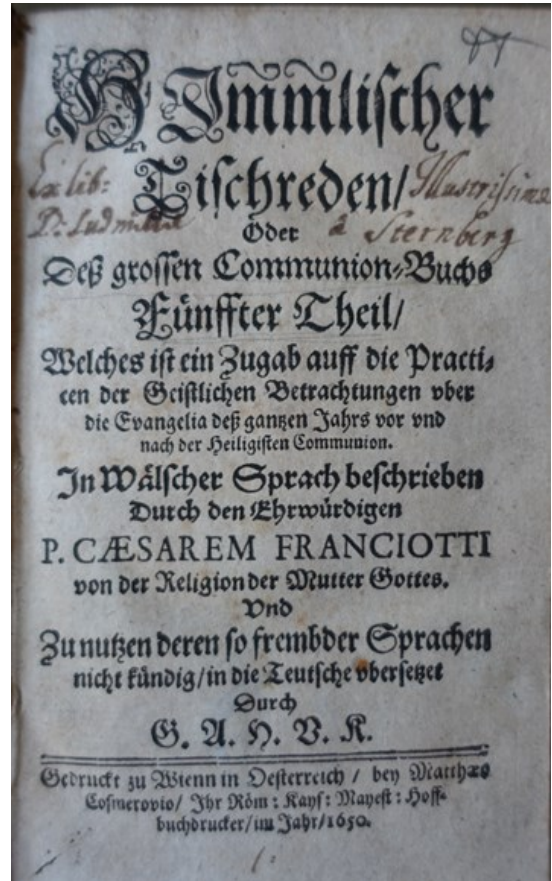 HImmlischer
Tischreden/
Ex lib: Illustrissimæ
D: Ludmillæ à Sternberg
Oder
Deß grossen Communion-Buchs
Fünffter Theil/
Welches ist ein Zugab auff die Practi-
cen der Geistlichen Betrachtungen vber
die Evangelia deß gantzen Jahrs vor vnd
nach der Heiligisten Communion.
In Wälscher Sprach beschrieben
Durch den Ehrwürdigen
P. CÆSAREM FRANCIOTTI
von der Religion der Mutter Gottes.
Vnd
Zu nutzen deren so frembder Sprachen
nicht kündig/in die Teutsche vbersetzet
Durch
G. A. H. V. K.
Gedruckt zu Wienn in Oesterreich / bey Matthæo
Cosmerovio/ Ihr Röm: Kays: Mayest: Hoff-
buchdrucker/im Jahr/1650.